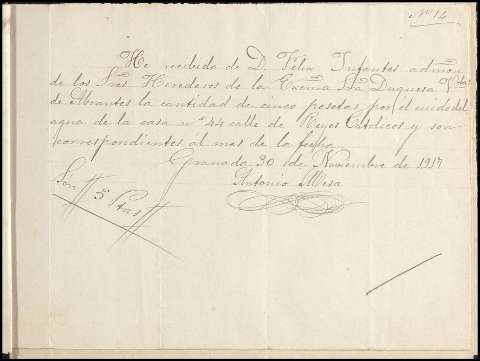 Nº 14
He recibido de D. Félix Infantes admon
de los Sres Herederos de la Excma Sra Duquesa Vda
de Abrantes la cantidad de cinco pesetas por el cuido del
agua de la casa nº 44 calle de Reyes Católicos y son
correspondientes al mes de la fecha
Granada 30 de Noviembre de 1917
Antonio Mesa
Son 5 Ptas